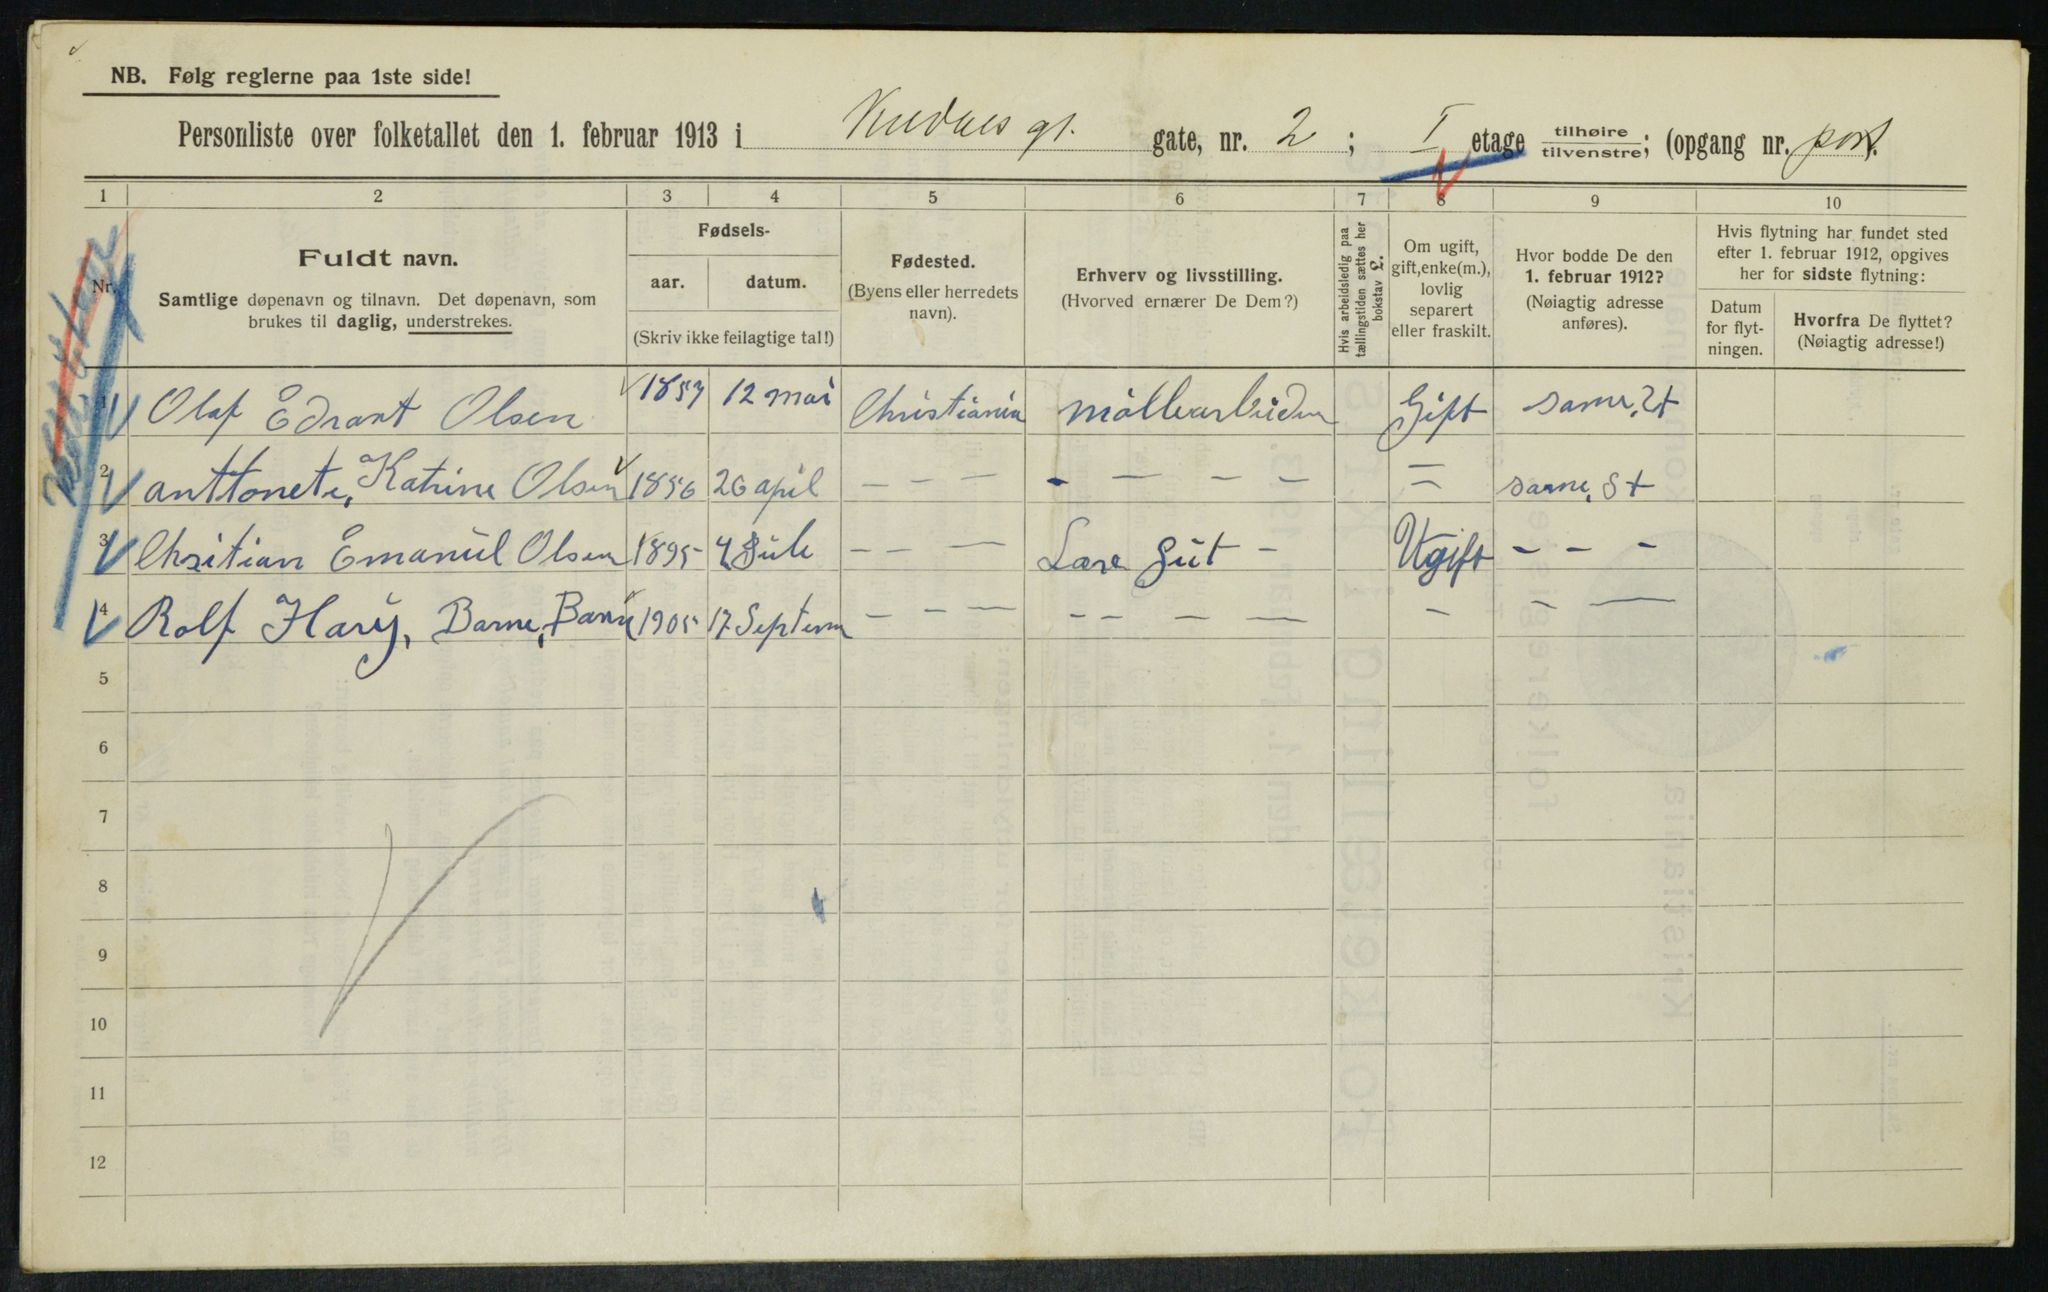 NB. Følg reglerne paa 1ste side!
Personliste over folketallet den 1. februar 1913 i gt. gate, nr. 2; I etage tilhøire tilvenstre; (opgang nr. port).
1 2 3 4 5 6 7 8 9 10
Nr.
Fuldt navn.
Samtlige døpenavn og tilnavn. Det døpenavn, som
brukes til daglig, understrekes.
Fødsels-
aar. datum.
(Skriv ikke feilagtige tal!)
Fødested.
(Byens eller herredets
navn).
Erhverv og livsstilling.
(Hvorved ernærer De Dem?)
Hvis arbeidsledig paa
tællingstiden sættes her
bokstav L.
Om ugift,
gift, enke(m.),
lovlig
separert
eller fraskilt.
Hvor bodde De den
1. februar 1912?
(Nøiagtig adresse
anføres).
Hvis flytning har fundet sted
efter 1. februar 1912, opgives
her for sidste flytning:
Datum
for flyt-
ningen.
Hvorfra De flyttet?
(Nøiagtig adresse!)
1 Olaf Edvart Olsen 1857 12 mai Christiania Gift same, St
2 anttonete, Katrine Olsen 1856 26 april – – – - – – – – = same, St
3 Chsitian Emanuel Olsen 1895 4 Juli – – – Lære Gut – Ugift – – –
4 Rolf Hary, Barne, Barn 1905 17 Septem – – – – – – – – – –
5
6
7
8
9
10
11
12